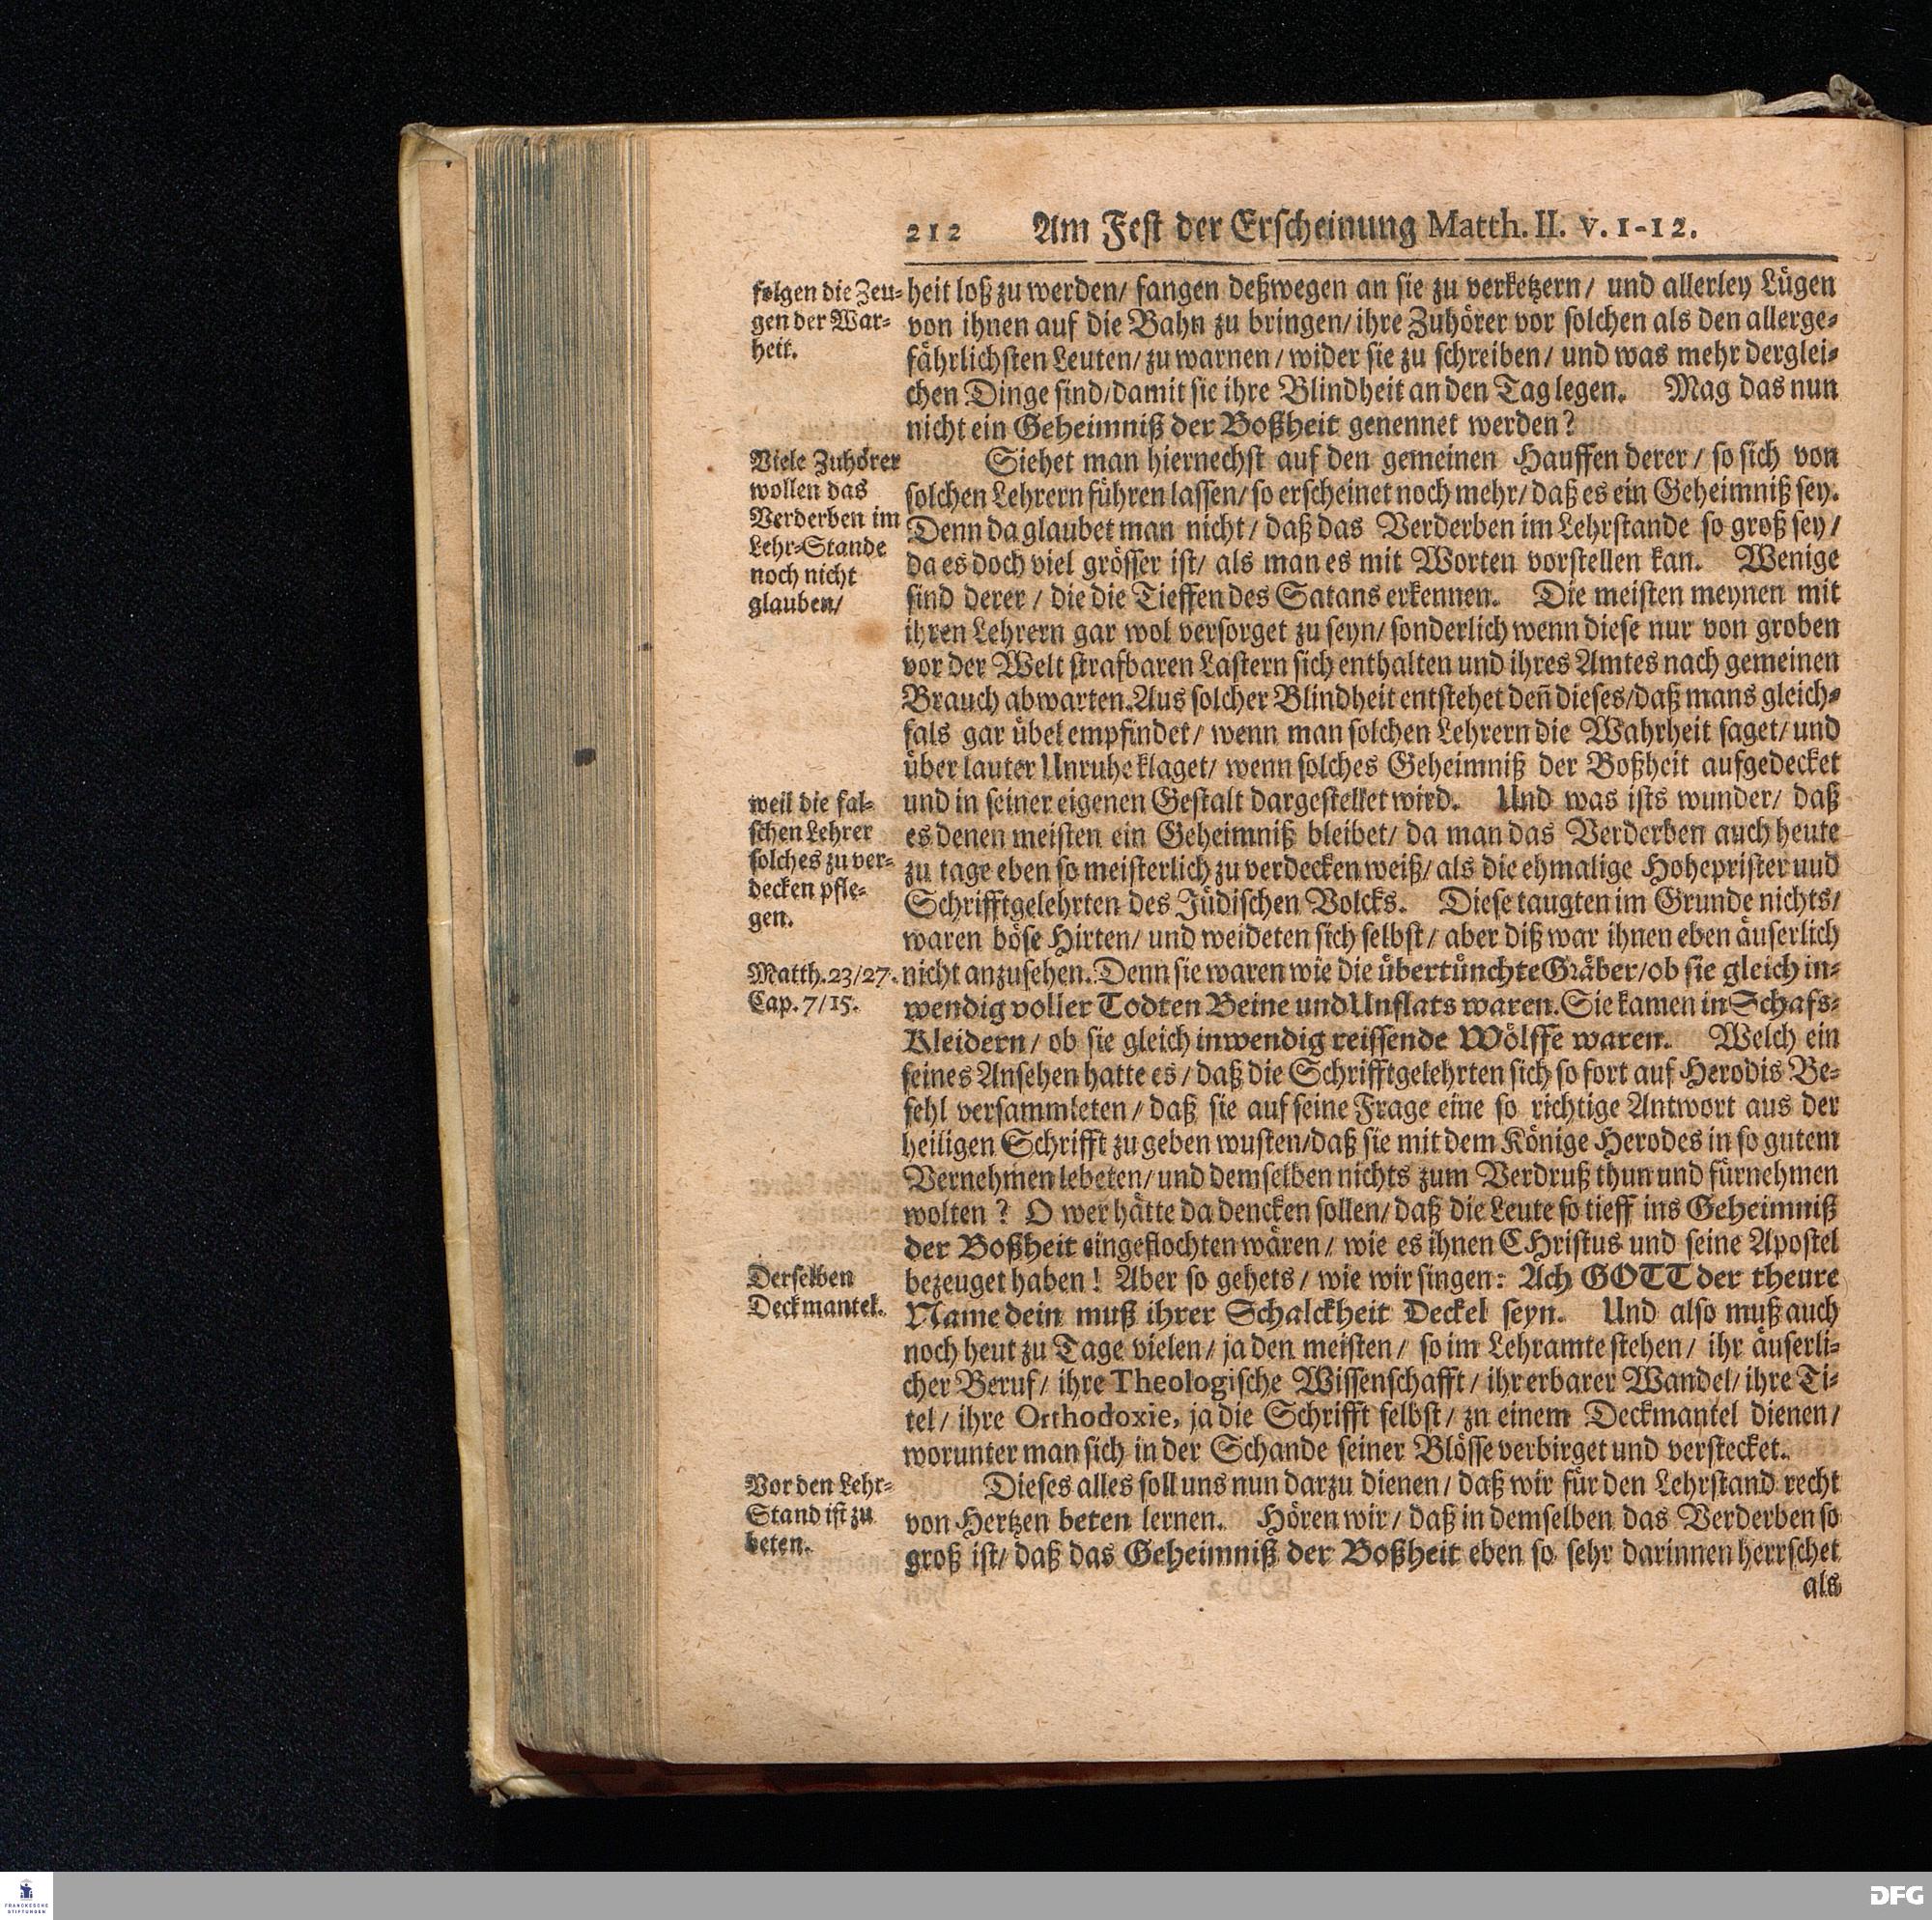 212 Am Fest der Erscheinung Matth. II. v. 1-12.
folgen die Zeu-
gen der War-
heit.
heit loß zu werden/ fangen deßwegen an sie zu verketzern/ und allerley Lügen
von ihnen auf die Bahn zu bringen/ ihre Zuhörer vor solchen als den allerge-
fährlichsten Leuten/ zu warnen/ wider sie zu schreiben/ und was mehr derglei-
chen Dinge sind/ damit sie ihre Blindheit an den Tag legen. Mag das nun
nicht ein Geheimniß der Boßheit genennet werden?
Viele Zuhörer
wollen das
Verderben im
Lehr-Stande
noch nicht
glauben/
Siehet man hiernechst auf den gemeinen Hauffen derer/ so sich von
solchen Lehrern führen lassen/ so erscheinet noch mehr/ daß es ein Geheimniß sey.
Denn da glaubet man nicht/ daß das Verderben im Lehrstande so groß sey/
da es doch viel grösser ist/ als man es mit Worten vorstellen kan. Wenige
sind derer/ die die Tieffen des Satans erkennen. Die meisten meynen mit
ihren Lehrern gar wol versorget zu seyn/ sonderlich wenn diese nur von groben
vor der Welt strafbaren Lastern sich enthalten und ihres Amtes nach gemeinen
Brauch abwarten. Aus solcher Blindheit entstehet deñ dieses/ daß mans gleich-
fals gar übel empfindet/ wenn man solchen Lehrern die Wahrheit saget/ und
über lauter Unruhe klaget/ wenn solches Geheimniß der Boßheit aufgedecket
weil die fal-
schen Lehrer
solches zu ver-
decken pfle-
gen.
und in seiner eigenen Gestalt dargestellet wird. Und was ists wunder/ daß
es denen meisten ein Geheimniß bleibet/ da man das Verderben auch heute
zu tage eben so meisterlich zu verdecken weiß/ als die ehmalige Hoheprister uud
Schrifftgelehrten des Jüdischen Volcks. Diese taugten im Grunde nichts/
waren böse Hirten/ und weideten sich selbst/ aber diß war ihnen eben äuserlich
Matth. 23/27.
Cap. 7/15.
nicht anzusehen. Denn sie waren wie die übertünchte Gräber/ ob sie gleich in-
wendig voller Todten Beine und Unflats waren. Sie kamen in Schafs-
Kleidern/ ob sie gleich inwendig reissende Wölffe waren. Welch ein
feines Ansehen hatte es/ daß die Schrifftgelehrten sich so fort auf Herodis Be-
fehl versammleten/ daß sie auf seine Frage eine so richtige Antwort aus der
heiligen Schrifft zu geben wusten/ daß sie mit dem Könige Herodes in so gutem
Vernehmen lebeten/ und demselben nichts zum Verdruß thun und fürnehmen
wolten? O wer hätte da dencken sollen/ daß die Leute so tieff ins Geheimniß
der Boßheit eingeflochten wären/ wie es ihnen CHristus und seine Apostel
Derselben
Deckmantel.
bezeuget haben! Aber so gehets/ wie wir singen: Ach GOTT der theure
Name dein muß ihrer Schalckheit Deckel seyn. Und also muß auch
noch heut zu Tage vielen/ ja den meisten/ so im Lehramte stehen/ ihr äuserli-
cher Beruf/ ihre Theologische Wissenschafft/ ihr erbarer Wandel/ ihre Ti-
tel/ ihre Orthodoxie, ja die Schrifft selbst/ zn einem Deckmantel dienen/
worunter man sich in der Schande seiner Blösse verbirget und verstecket.
Vor den Lehr-
Stand ist zu
beten.
Dieses alles soll uns nun darzu dienen/ daß wir für den Lehrstand recht
von Hertzen beten lernen. Hören wir/ daß in demselben das Verderben so
groß ist/ daß das Geheimniß der Boßheit eben so sehr darinnen herrschet
als
FRANCKESCHE
STIFTUNGEN
DFG